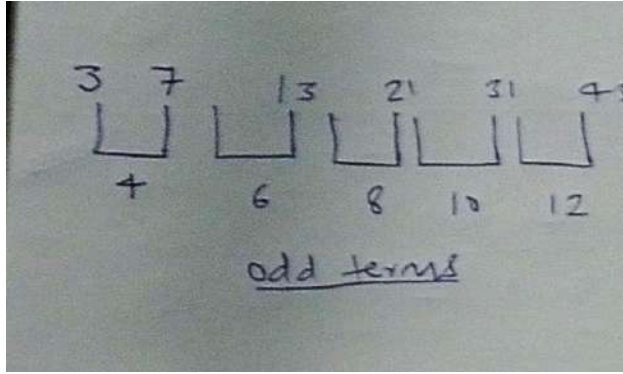 3 7 13 21 31 4
4 6 8 10 12
odd terms